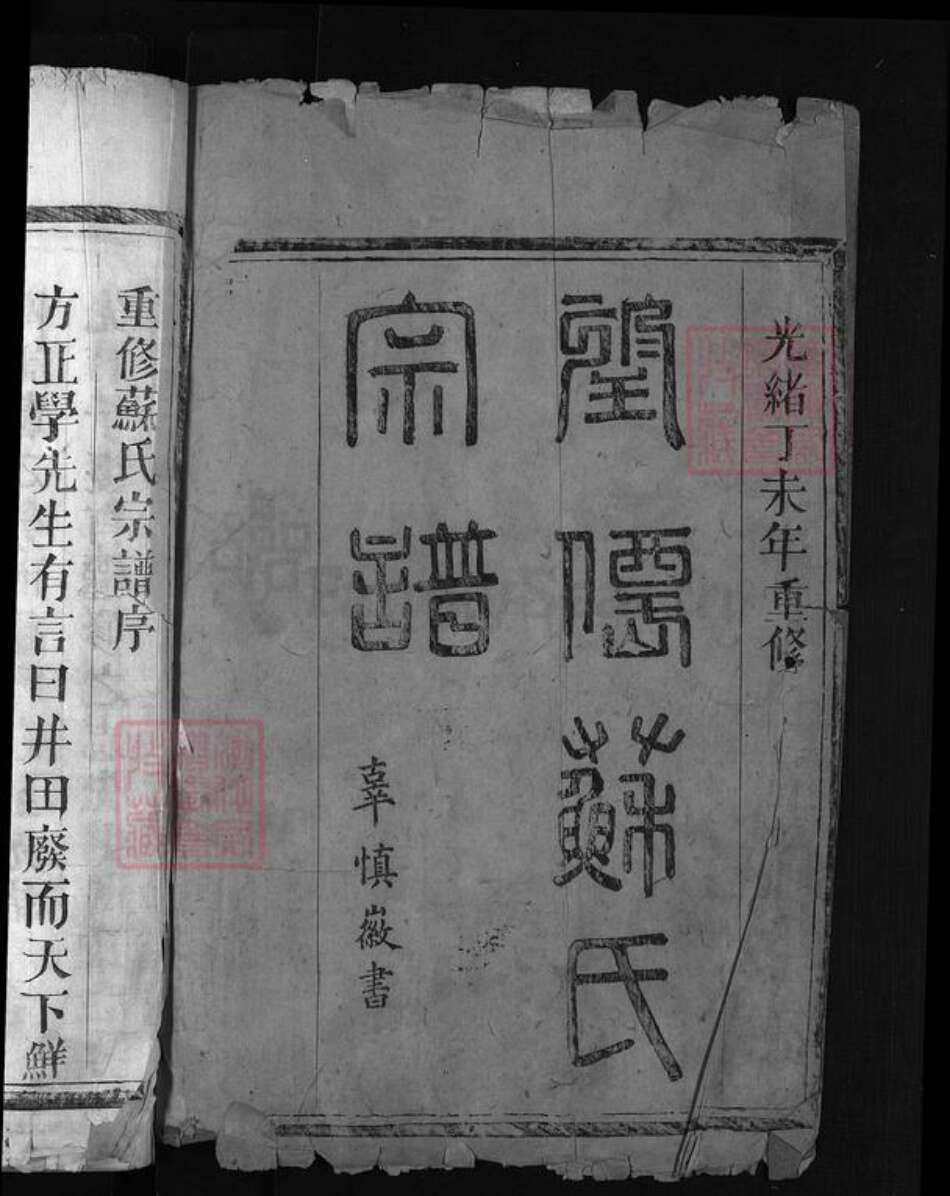 光緒丁未年重修
望僊蘇氏
宗譜
辜慎徽書
重修蘇氏宗譜序
方正學先生有言曰井田廢而天下鮮